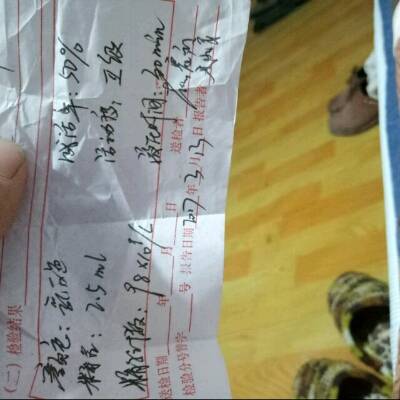 (二)检验结果
颜色:乳白色 成活率:50%
精量:2.5ml 活动级:Ⅲ级
精子计数:98×10⁹/L 液化时间:30min
送检日期 年 月 日 送检者
检验分号 字 号 报告日期2017年3月13日 报告者